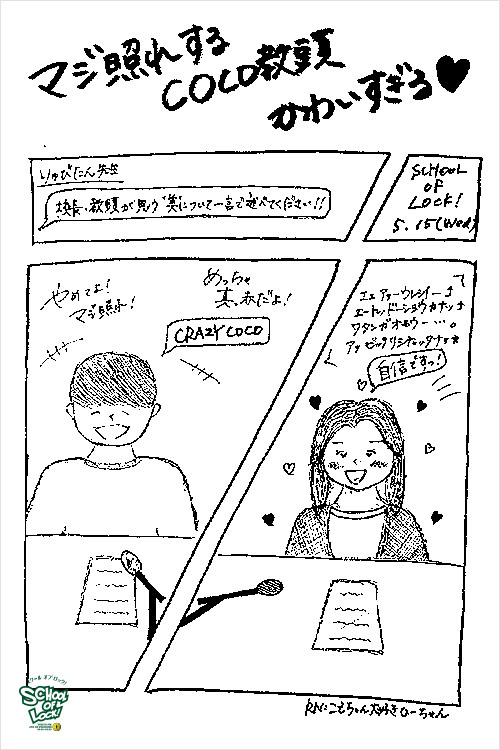 マジ照れする
COCO教頭
かわいすぎる♥
りゅびにん先生
校長、教頭が思う"美"について一言で述べてください!!
SCHOOL
OF
LOCK!
5.15(Wed)
やめてよ!
マジ照れ!
めっちゃ
真っ赤だよ!
CRAZY COCO
エェ アァーウレシイー↓
エートンドーショウカナッ↓
ワタシガオモウー…。
アッ ビックリシチャッタナッ☆
自信ですっ!
RN:こもちゃん大好きひーちゃん
スクール オブ ロック!
SCHOOL
OF
LOCK!